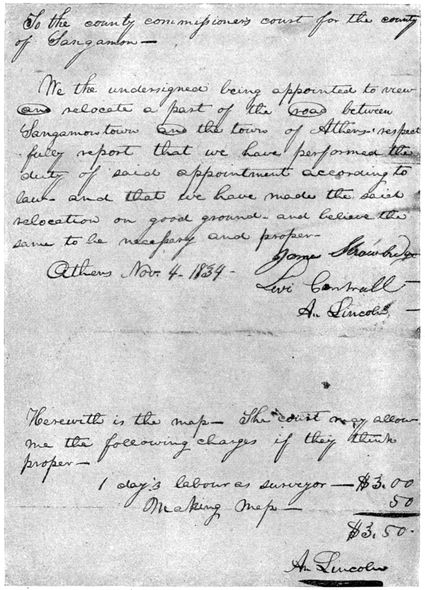 To the county commissioner's court for the county
of Sangamon—
We the undersigned being appointed to view
and relocate a part of the road between
Sangamon town and the town of Athens respect
fully report that we have performed the
duty of said appointment according to
law- and that we have made the said
relocation on good ground- and believe the
same to be necessary and proper-
James Strowbridge
Athens Nov. 4- 1834-
Levi Cantrall
A. Lincoln
Herewith is the map- The court may allow
me the following charges if they think
proper-
1 day's labour as surveyor — $3.00
Making map — 50
$3.50-
A. Lincoln